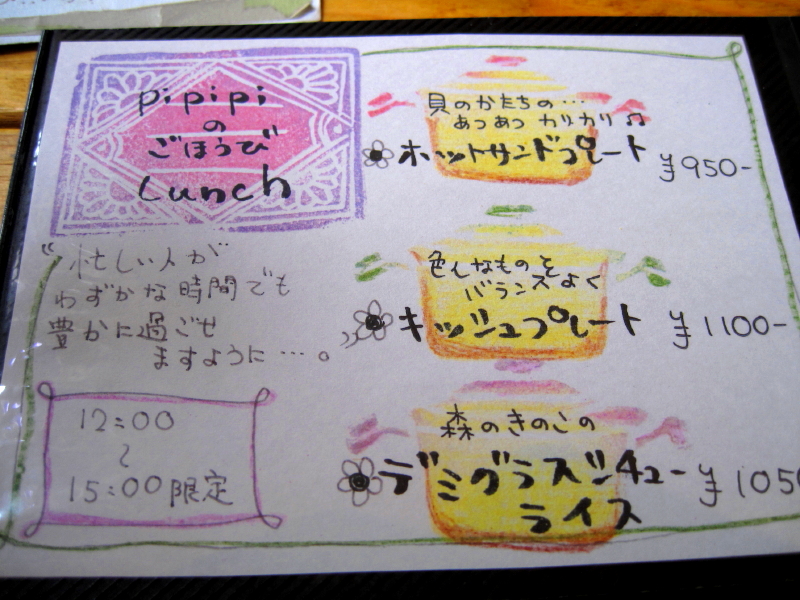 pipipi
の
ごほうび
Lunch
“忙しい人が
わずかな時間でも
豊かに過ごせ
ますように…。”
12:00
〜
15:00限定
貝のかたちの…
あつあつ カリカリ♫
ホットサンドプレート ¥950-
色んなものを
バランスよく
キッシュプレート ¥1100-
森のきのこの
デミグラスシチュー ¥1050
ライス